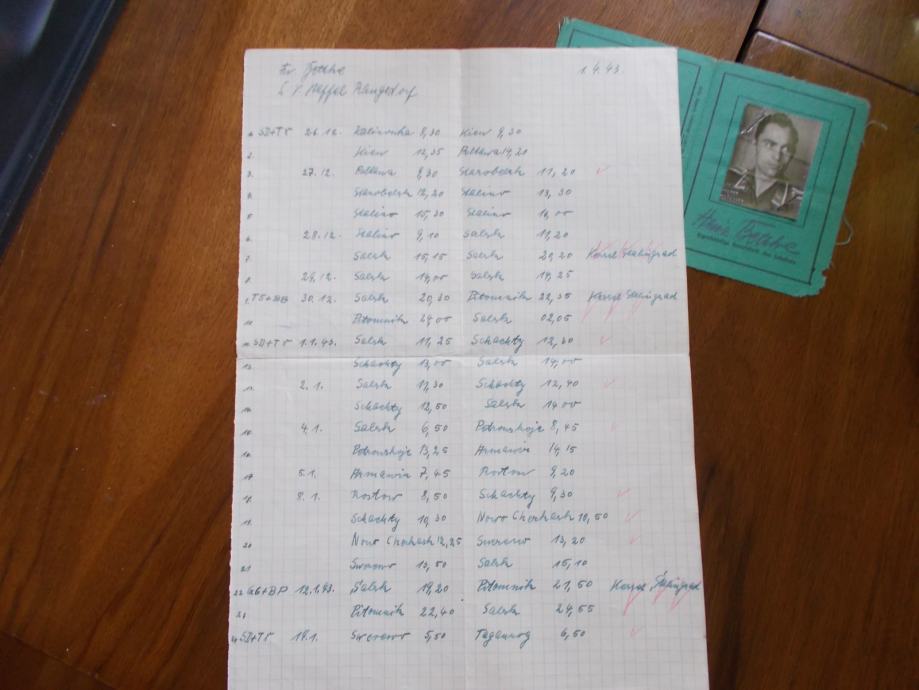 1.4.43.
1. SD+TS 26.12. Kalinowka 8,30 Kiew 9,30
2. Kiew 12,35 Poltawa 14,20
3. 27.12. Poltawa 8,30 Starobelsk 11,20
4. Starobelsk 12,20 Stalino 13,30
5. Stalino 15,30 Stalino 16,00
6. 28.12. Stalino 9,10 Salsk 11,20
7. Salsk 15,15 Salsk 21,20 Kessel Stalingrad
8. 29.12. Salsk 19,00 Salsk 19,25
9. TS+BB 30.12. Salsk 20,30 Pitomnik 22,35 Kessel Stalingrad
10. Pitomnik 24,00 Salsk 02,05
11. SD+TS 1.1.43. Salsk 11,25 Schachty 12,30
12. Schachty 13,00 Salsk 14,00
13. 2.1. Salsk 11,30 Schachty 12,40
14. Schachty 12,50 Salsk 14,00
15. 4.1. Salsk 6,50 8,45
16. 13,25 Armawir 14,15
17. 5.1. Armawir 7,45 Rostow 9,20
18. 8.1. Rostow 8,50 Schachty 9,30
19. Schachty 10,30 Nowo 10,50
20 Nowo 12,25 Swerewo 13,20
21 Swerewo 13,50 Salsk 15,10
22 GG+BP 12.1.43. Salsk 19,20 Pitomnik 21,50 Kessel Stalingrad
23 Pitomnik 22,40 Salsk 24,55
24 SD+TS 19.1. Swerewo 5,50 Taganrog 6,50